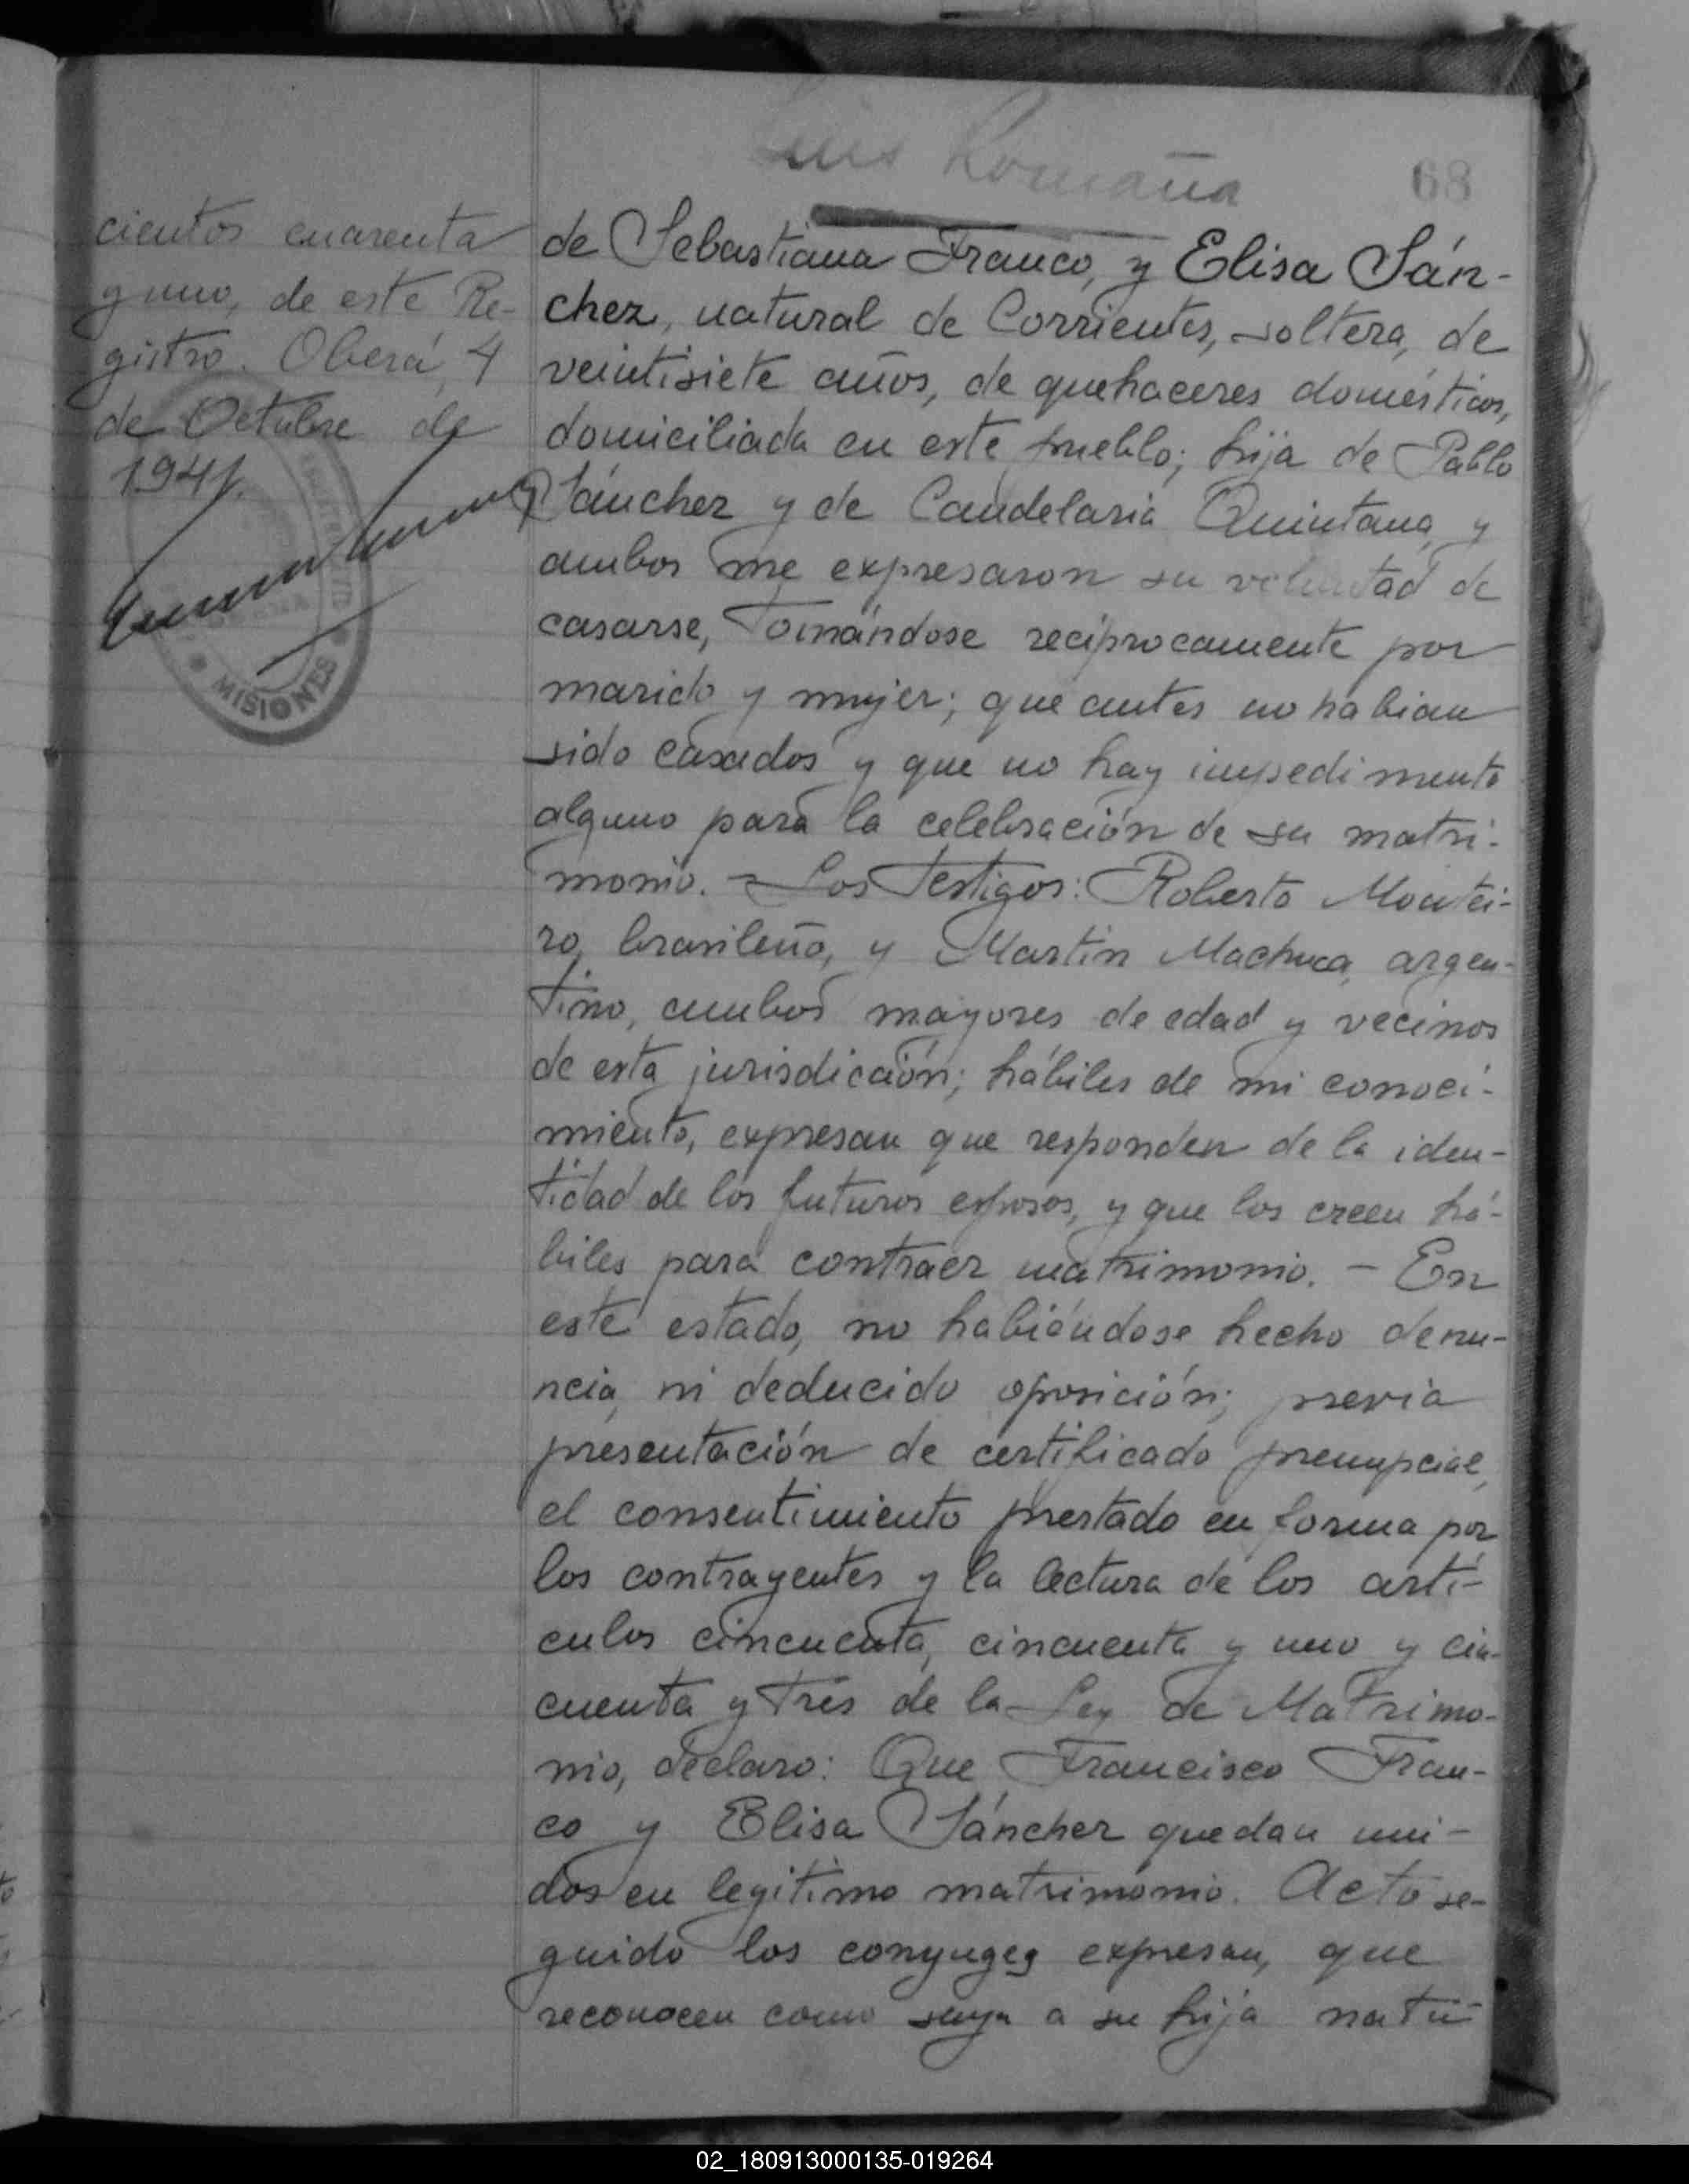 Luis Romaña
68
cientos cuarenta
y uno, de este Re-
gistro. Oberá, 4
de Octubre de
1941.
MISIONES
de Sebastiana Franco, y Elisa Sán-
chez, natural de Corrientes, soltera, de
veintisiete años, de quehaceres domésticos,
domiciliada en este pueblo; hija de Pablo
Sánchez y de Candelaria Quintana, y
ambos me expresaron su voluntad de
casarse, Tomándose recíprocamente por
marido y mujer; que antes no habian
sido casados y que no hay impedimento
alguno para la celebración de su matri-
monio. - Los Testigos: Roberto Montei-
ro, brasileño, y Martin Machuca, argen-
tino, ambos mayores de edad y vecinos
de esta jurisdicción; hábiles de mi conoci-
miento, expresan que responden de la iden-
tidad de los futuros esposos, y que los creen há-
biles para contraer matrimonio. - En
este estado, no habiéndose hecho denu-
ncia, ni deducido oposición; previa
presentación de certificado prenupcial,
el consentimiento prestado en forma por
los contrayentes y la lectura de los artí-
culos cincuenta, cincuenta y uno y cin-
cuenta y tres de la Ley de Matrimo-
nio, declaro: Que Francisco Fran-
co y Elisa Sánchez quedan uni-
dos en legitimo matrimonio. Acto se-
guido los conyuges expresan, que
reconocen como suya a su hija natu-
02_180913000135-019264